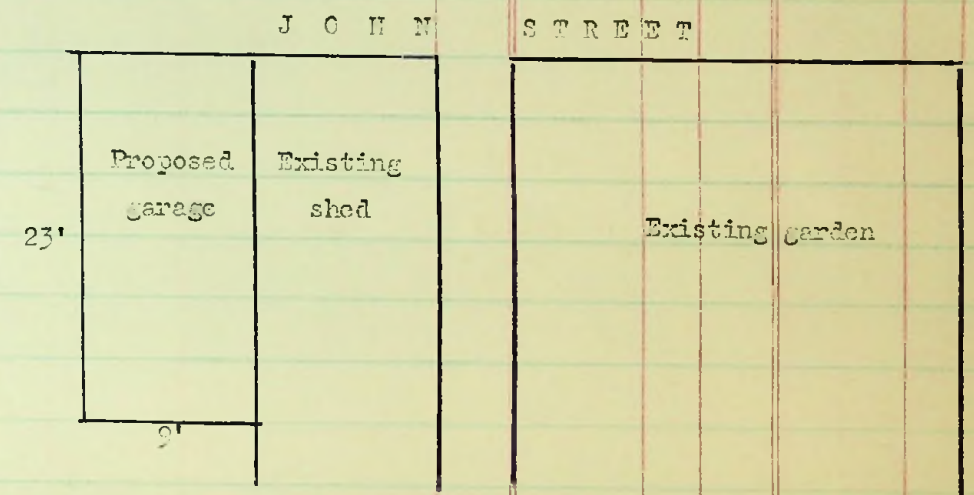 JOHN STREET
Proposed garage
Existing shed
23'
Existing garden
9'